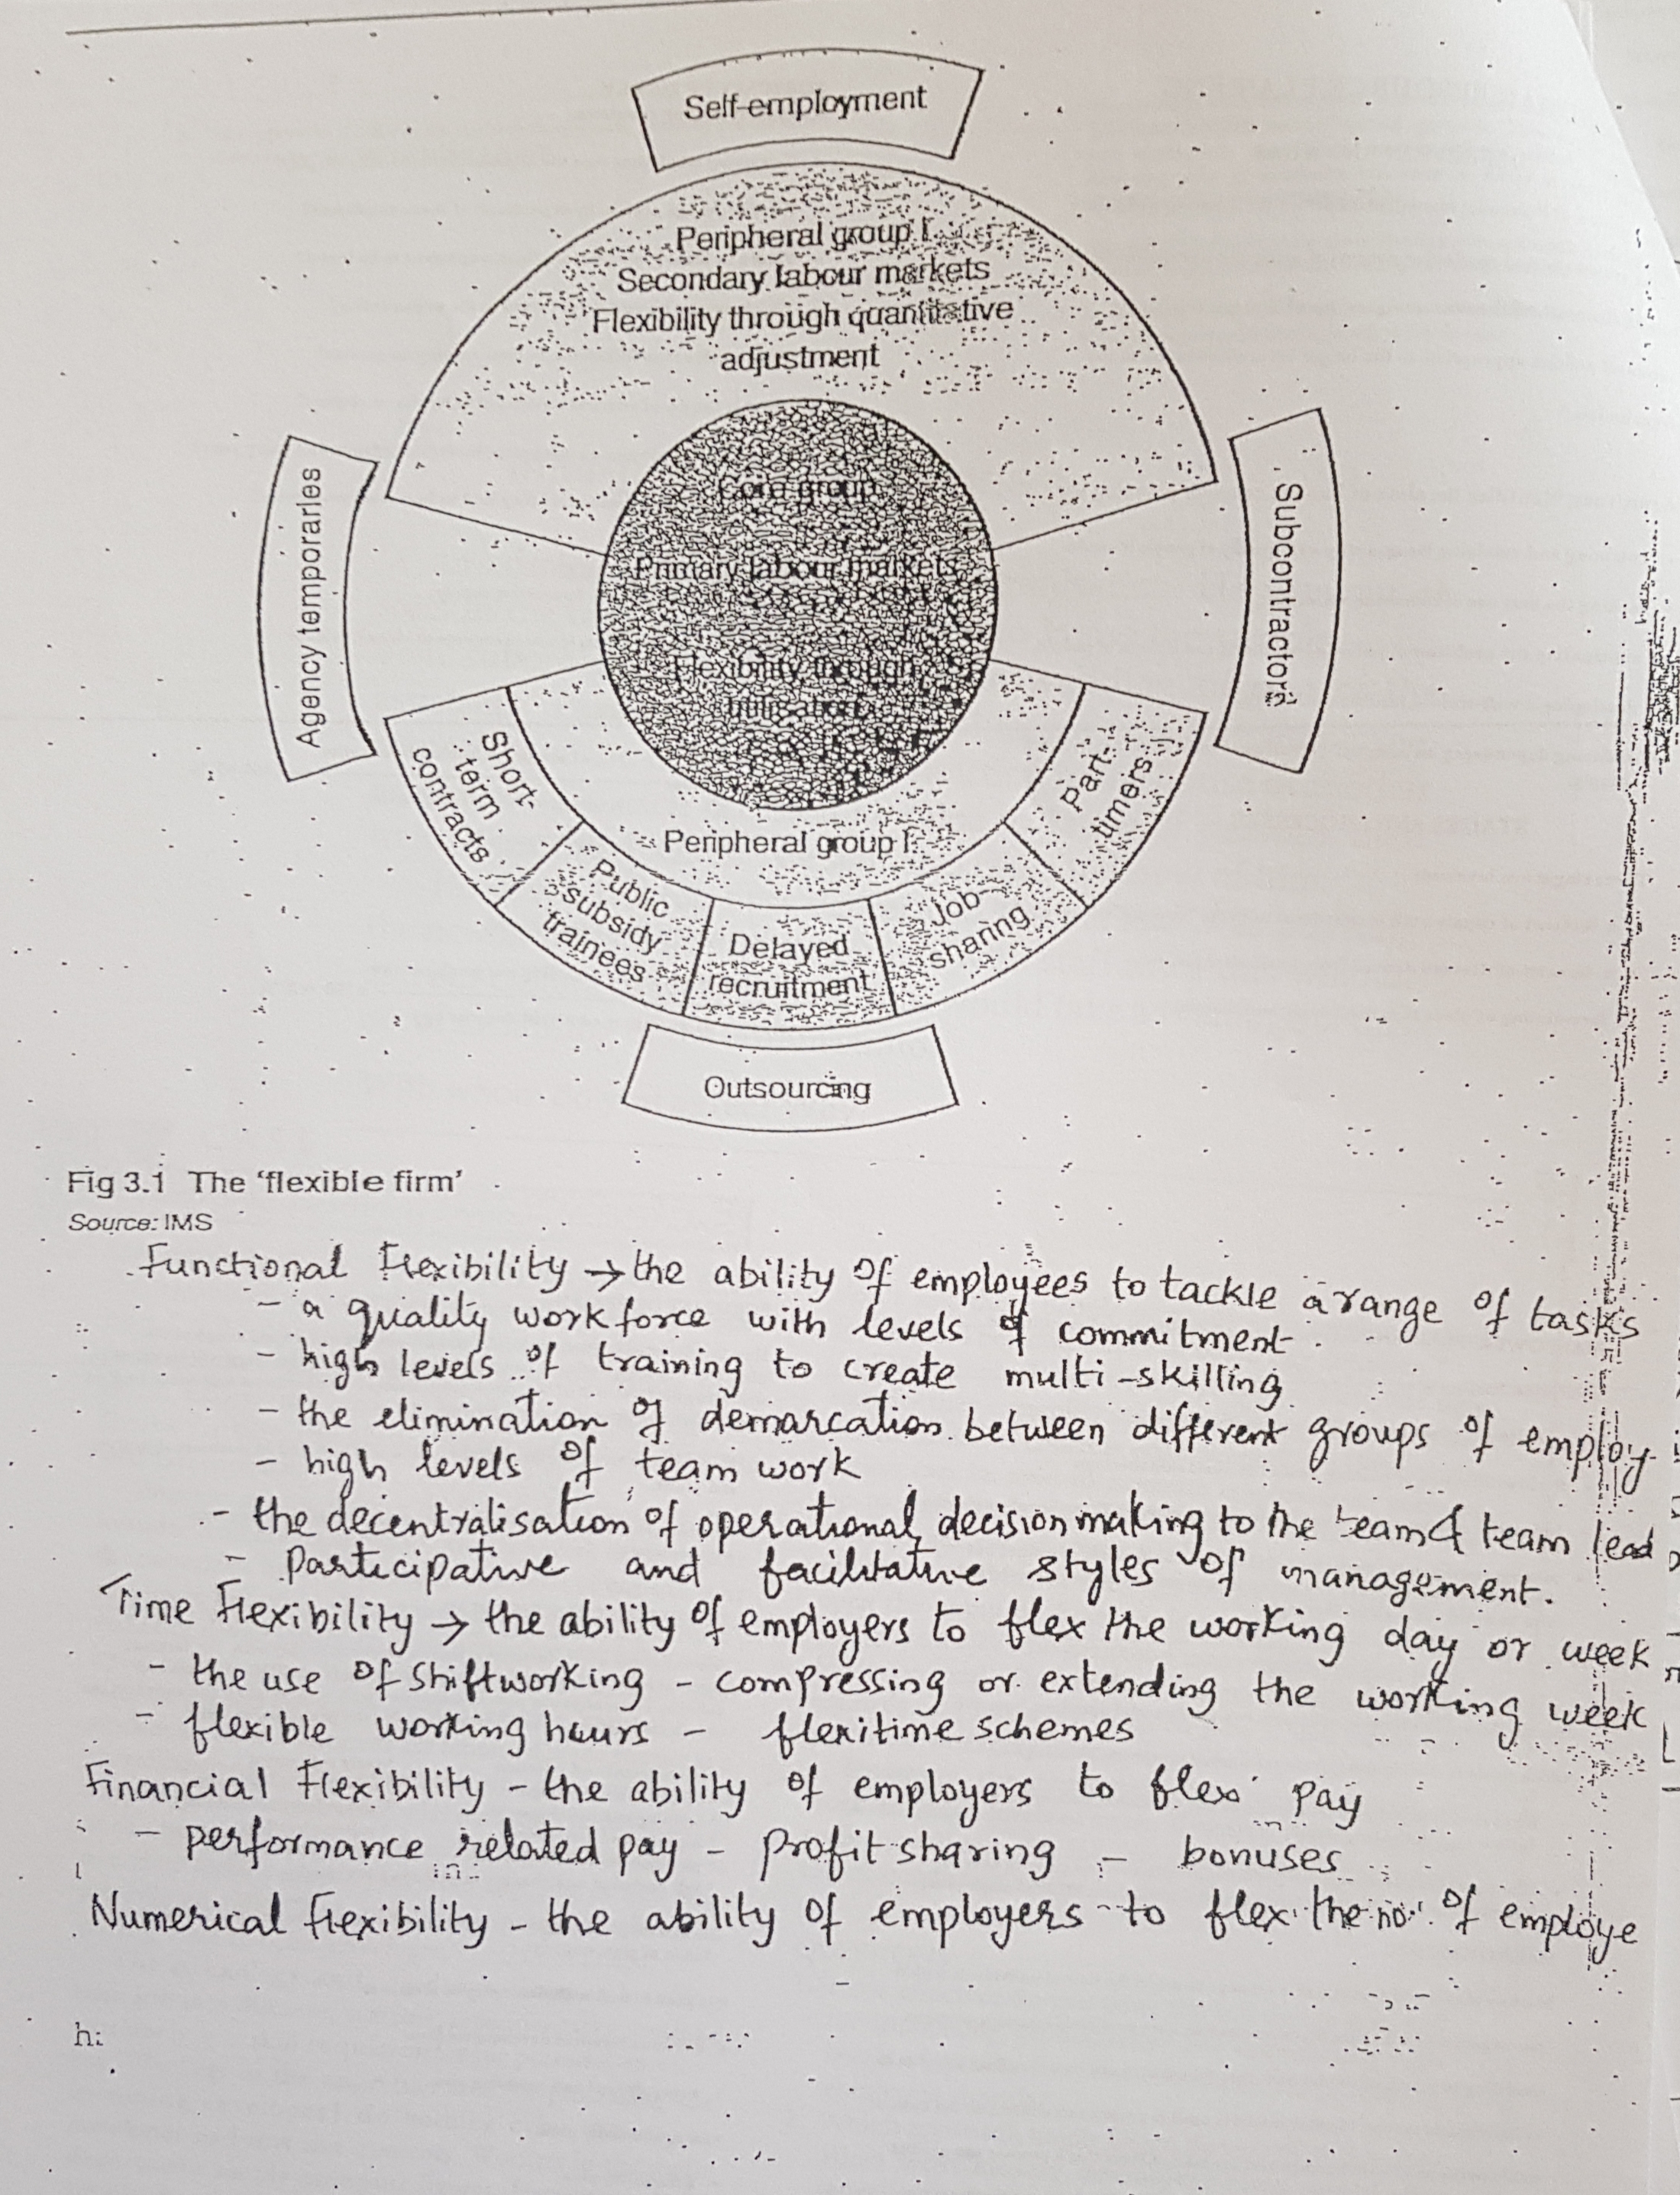 Self-employment
Peripheral group I
Secondary labour markets
Flexibility through quantitative
adjustment
Agency temporaries
Core group
Primary labour markets
Flexibility through
Subcontractors
Short-
term
contracts
Peripheral group I
Part-
timers
Public
subsidy
trainees
Delayed
recruitment
Job-
sharing
Outsourcing
Fig 3.1 The ‘flexible firm’
Source: IMS
Functional Flexibility → the ability of employees to tackle a range of tasks
- a quality workforce with levels of commitment
- high levels of training to create multi-skilling
- the elimination of demarcation between different groups of employ
- high levels of team work
- the decentralisation of operational decision making to the team & team lead
- participative and facilitative styles of management.
Time Flexibility → the ability of employers to flex the working day or week
- the use of shiftworking - compressing or extending the working week
- flexible working hours - flexitime schemes
Financial Flexibility - the ability of employers to flex pay
- performance related pay - profit sharing - bonuses
Numerical flexibility - the ability of employers to flex the no. of employe
h: